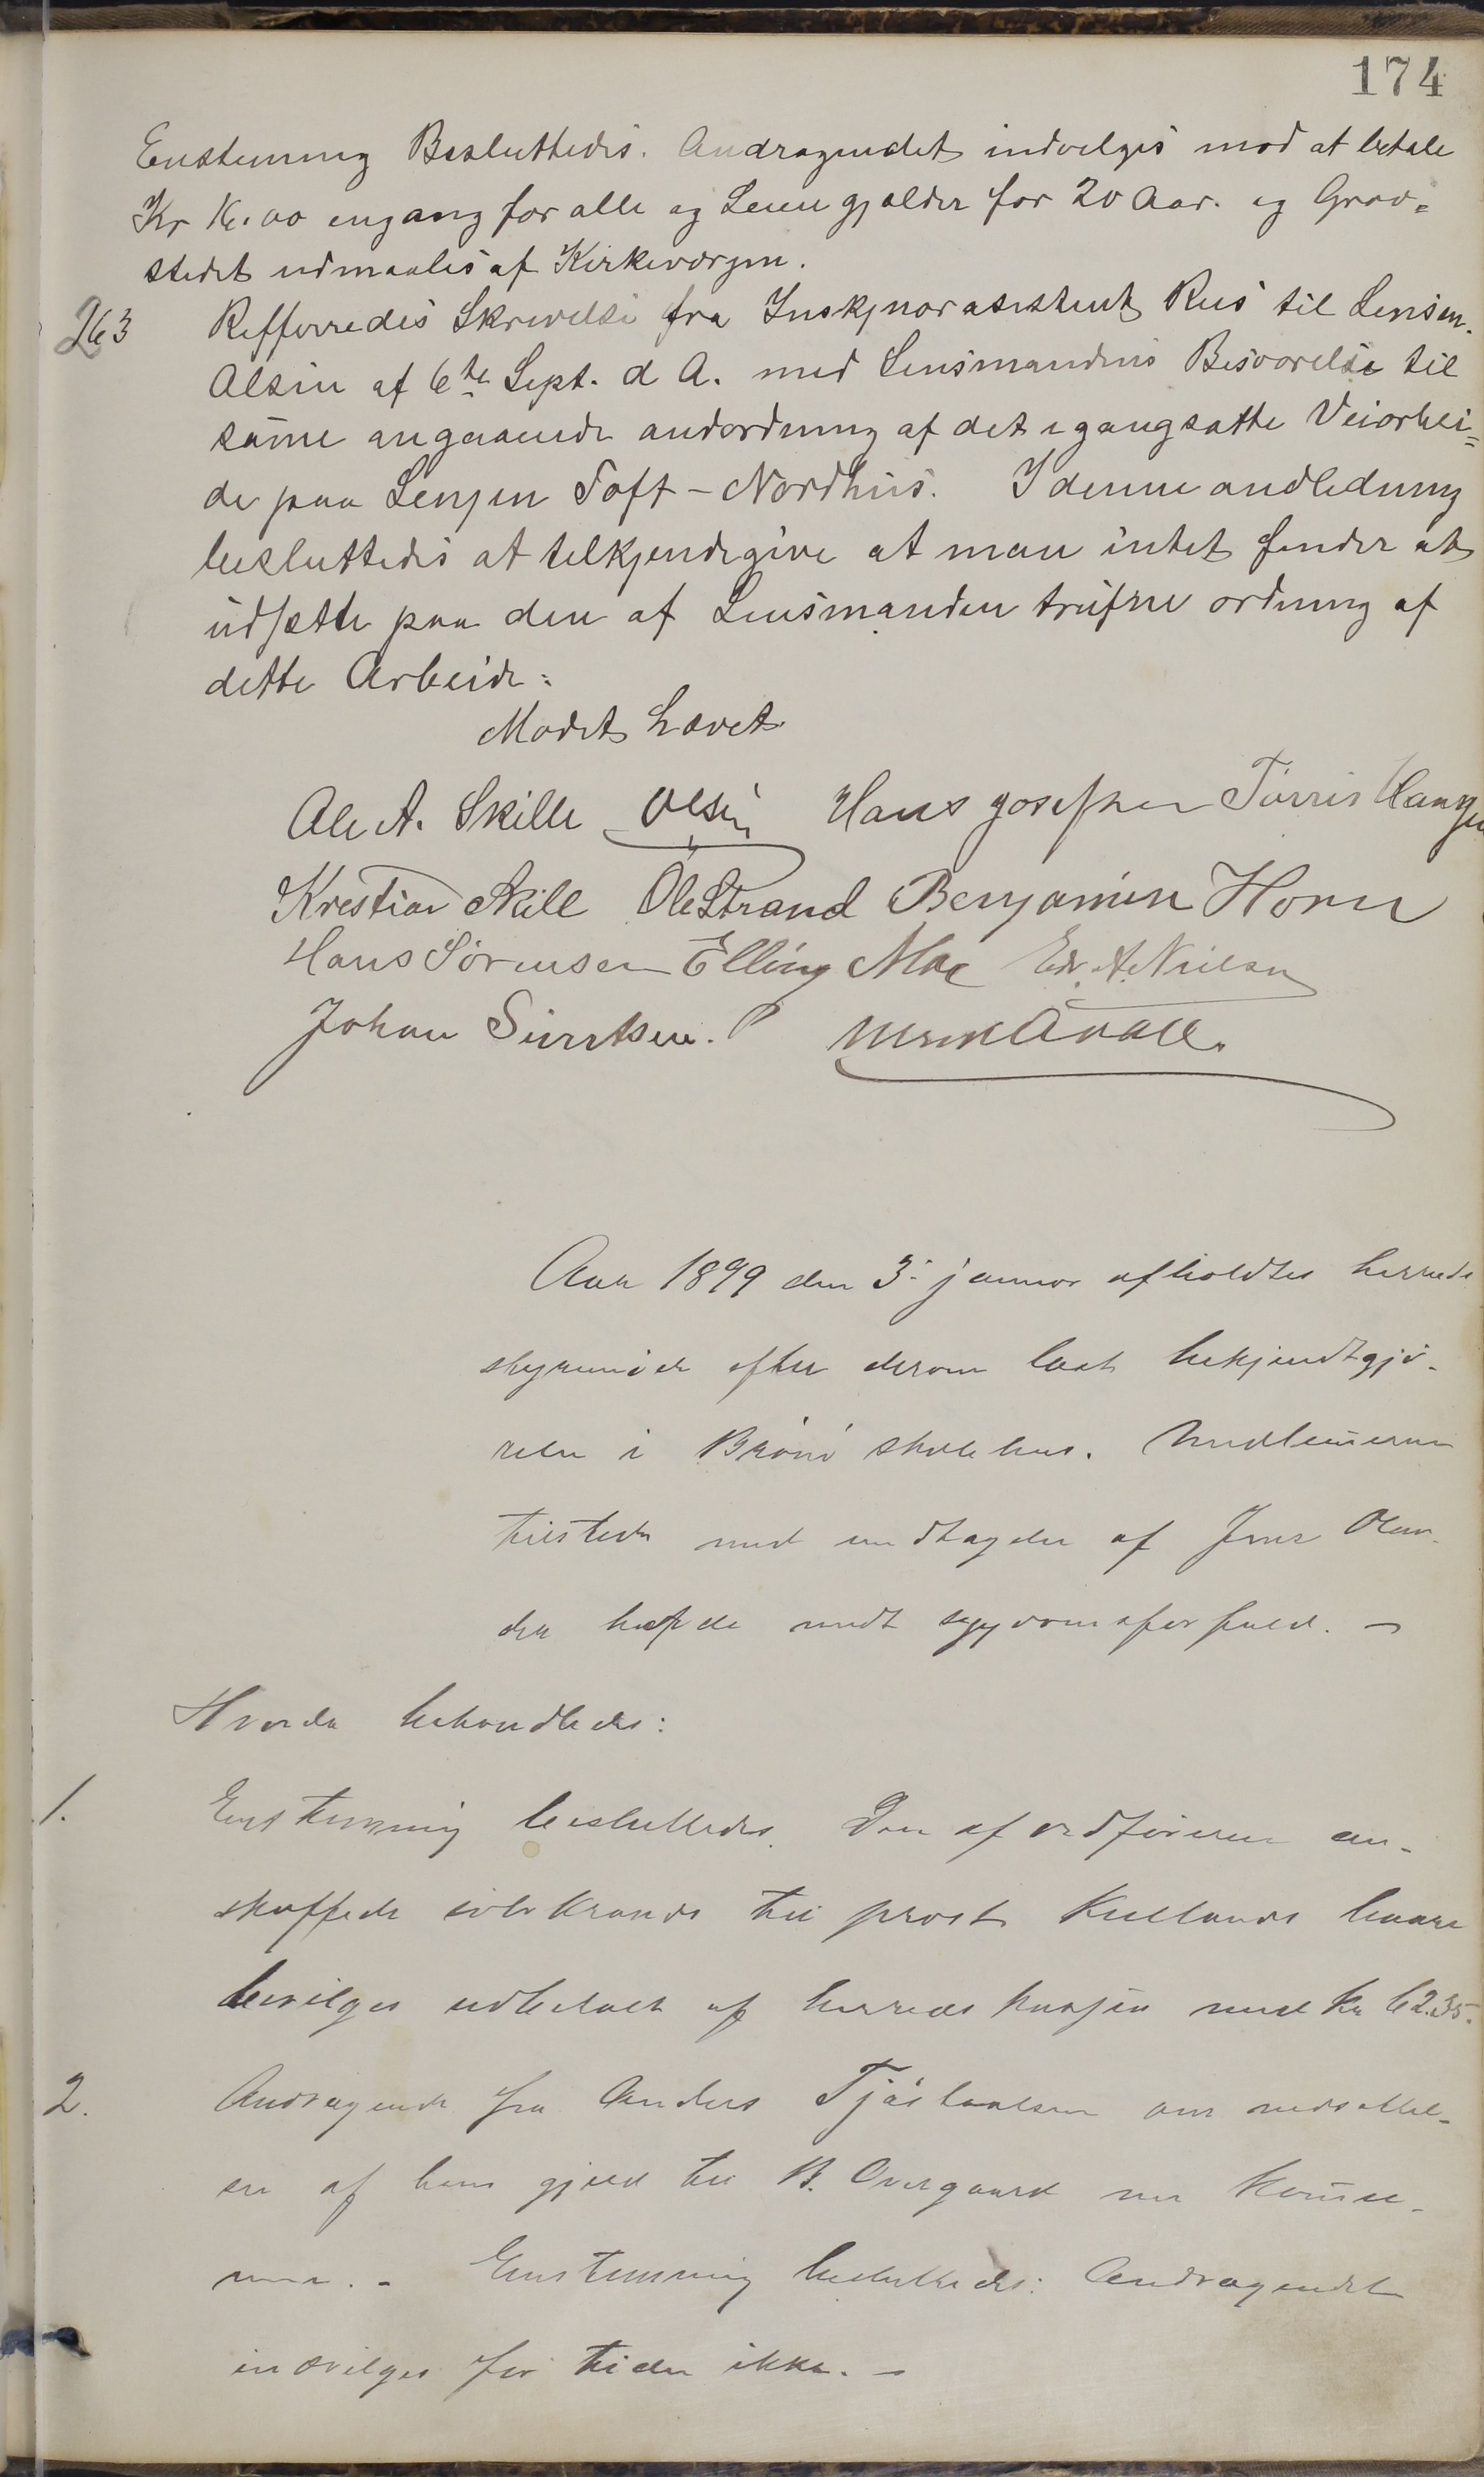 174
Enstemmig Besluttedes. Andragendet indvelges mod at betale
Kr 16.00 engang for alle og Leien gjælder for 20 Aar. og Grav=
stedet udmaales af Kirkeværgen.
263 Refferredes Skrivelse fra Inskjnørasistent Ries til Lensm.
Olsen af 6te Sept. d A. med Lensmandens Besvarelse til
same angaaende andordning af det igangsatte Veiarbei=
de paa Lengen Toft - Nordhus. I denne andledning
besluttedes at telkjendegive at man intet finder at
udsette paa den af Lensmanden trufne ordning af
dette Arbeide.
Mødet hævet.
Ole A. Skille Olsen Hans Josefsen Tørris Haugen
Krestian Skille Ole Strand Benjamin Horn
Hans Sørensen Elling Moe Edv. A. Nielsen
Johan Sivertsen.
Aar 1899 den 3. januar afholdtes herreds
styremøde efter derom lart bekjendtgjø-
relse i Brønø skolehus. Medlemmerne
tilstede med undtagelse af Jens Olsen
der hafde meldt sygdomsforfald. -
Hvorda behandledes:
1. Enstemmig besluttedes. Den af ordføreren an-
skaffede sølvkrands til provst Kiellands baare
bevilges udbetalt af herredskassen med kr 62.35.
2. Andragende fra Anders Tjøstolvsen om nedsættel-
se af hans gjæld til B. Overgaard ms Kommu-
ne. - Enstemmig besluttedes: Andragendet
indvilges for tiden ikke. -